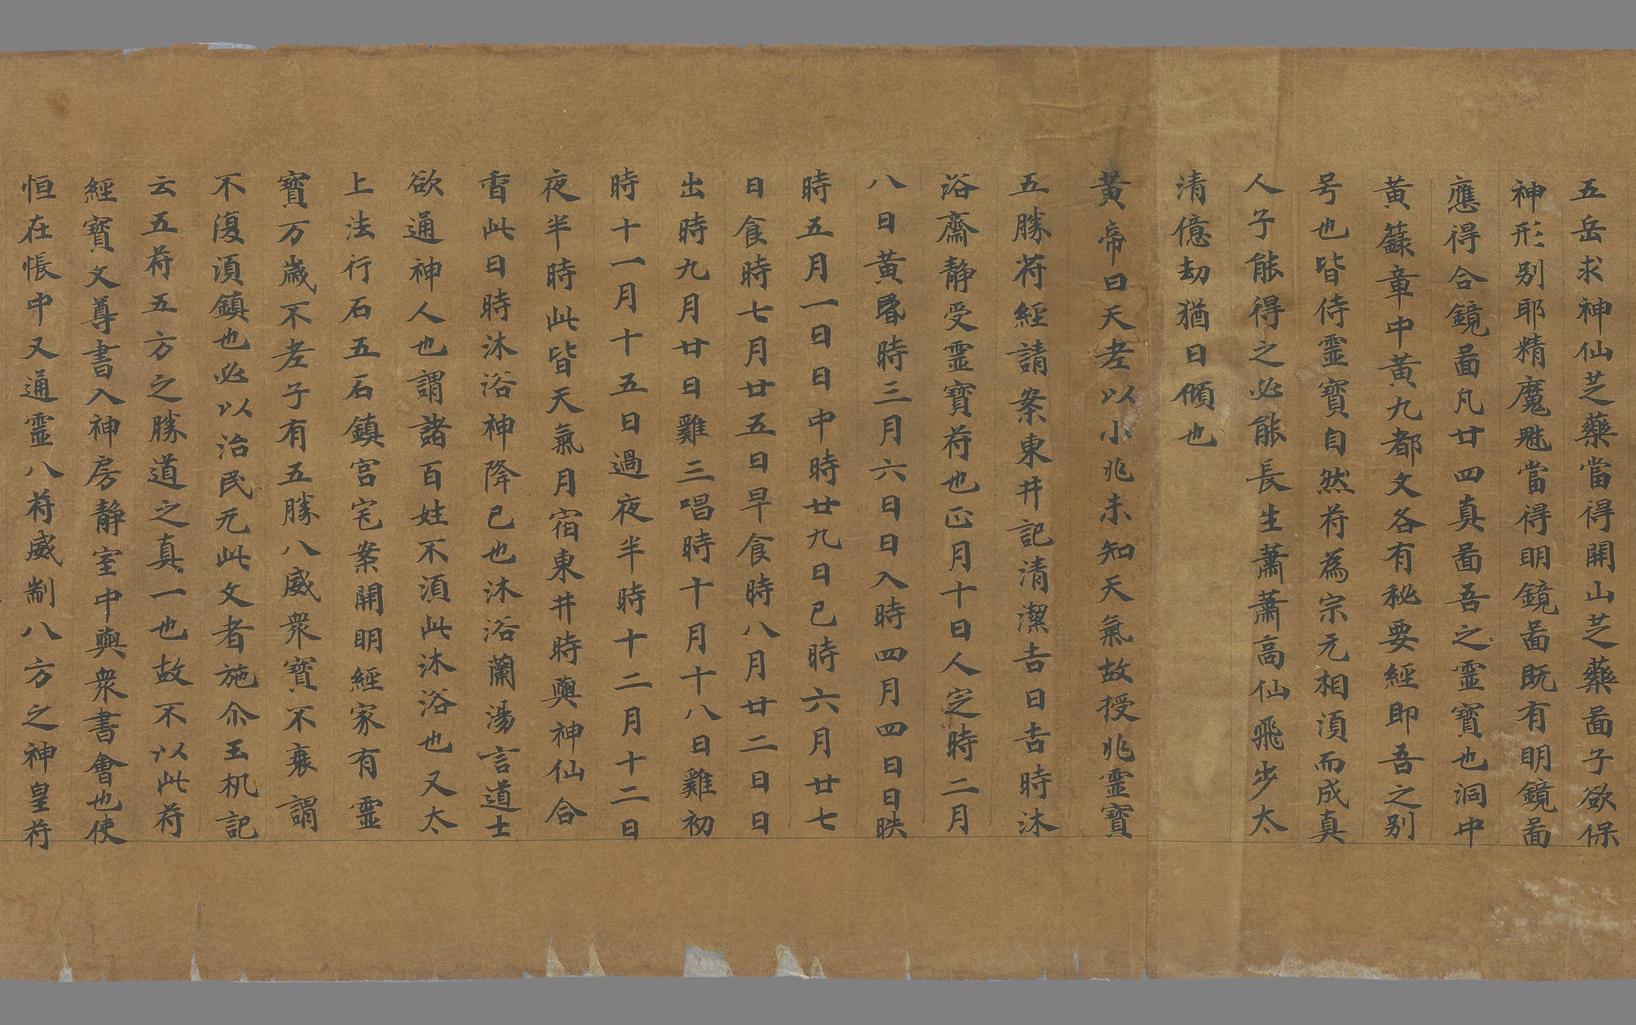 五岳求神仙芝藥當得開山芝藥啚子欲保
神形别耶精魔魅當得明鏡啚既有明鏡啚
應得合鏡啚凡廿四真啚吾之靈寶也洞中
黃籙章中黃九都文各有秘要經即吾之别
号也皆侍靈寶自然苻為宗元相湏而成真
人子能得之必能長生蕭蕭高仙飛步太
清億劫猶日傾也
黃帝曰天老以小兆未知天氣故授兆靈寶
五勝苻經請案東井記清潔吉日吉時沐
浴齋静受靈寶苻也正月十日人定時二月
八日黃昬時三月六日日入時四月四日日昳
時五月一日日中時廿九日巳時六月廿七
日食時七月廿五日早食時八月廿二日日
出時九月廿日雞三唱時十月十八日雞初
時十一月十五日過夜半時十二月十二日
夜半時此皆天氣月宿東井時與神仙合
會此日時沐浴神降已也沐浴蘭湯言道士
欲通神人也謂諸百姓不湏此沐浴也又太
上法行石五石鎮宫宅案開明經家有靈
寳万歲不老子有五勝八威衆寳不衰謂
不復湏鎮也必以治民无此文者施尒玉机記
云五苻五方之勝道之真一也故不以此苻
經寳文尊書入神房静室中與衆書會也使
恒在帳中又通靈八苻威制八方之神皇苻